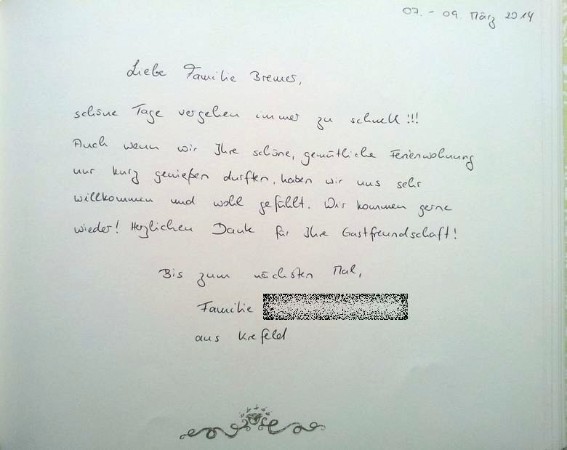 07. - 09. März 2014
Liebe Familie Bremer,
schöne Tage vergehen immer zu schnell!!!
Auch wenn wir Ihre schöne, gemütliche Ferienwohnung
nur kurz genießen durften, haben wir uns sehr
willkommen und wohl gefühlt. Wir kommen gerne
wieder! Herzlichen Dank für Ihre Gastfreundschaft!
Bis zum nächsten Mal,
Familie
aus Krefeld